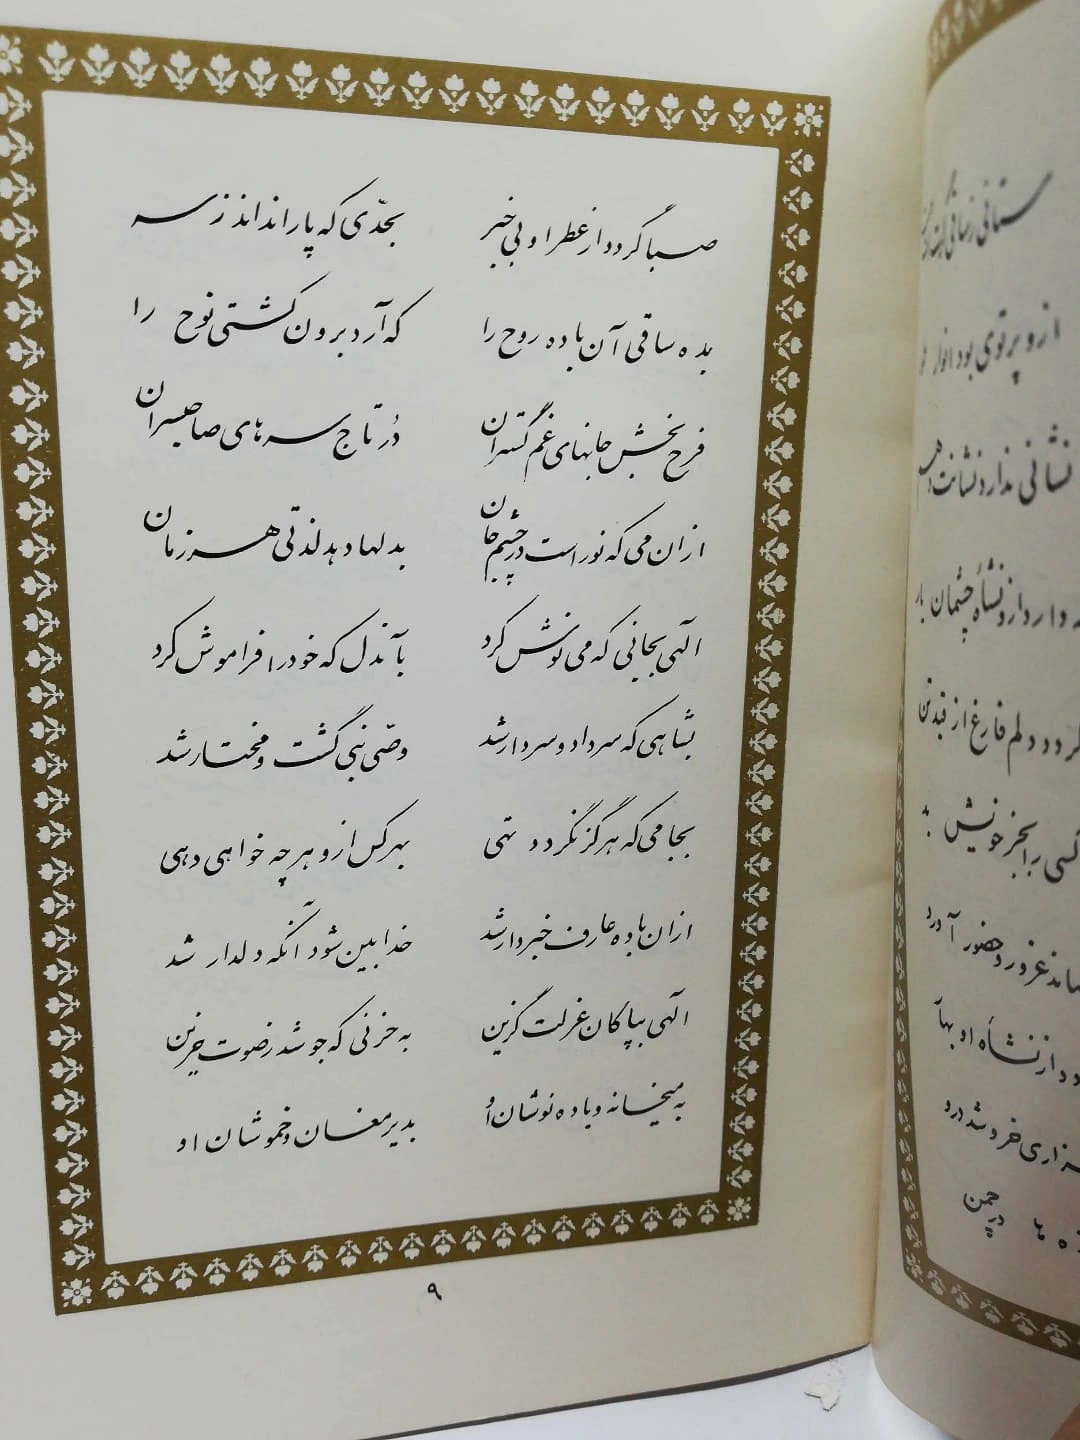 صبا گردد از عطر او بی خبر
بجدّی که پا را نداند ز سر
بده ساقی آن باده روح را
که آرد برون کشتی نوح را
فرح بخش جانهای غم گستران
دُر تاج سرهای صاحبسران
ازان می که نور است در چشم جان
بدلها دهد لذتی هر زمان
الهی بجانی که می نوش کرد
بآندل که خود را فراموش کرد
بشاهی که سر داد و سردار شد
وصّی نبی گشت و مختار شد
بجامی که هرگز نگردد تهی
بهر کس ازو هر چه خواهی دهی
ازان باده عارف خبردار شد
خدابین شود آنکه دلدار شد
الهی بپاکان عزلت گزین
به حزنی که جوشد ز صوت حزین
به میخانه و باده نوشان او
بدیر مغان و خموشان او
۹
ازو پرتوی بود انوار
نشانی ندارد نشانت دهم
دارد از نشأه چشمان یار
گردد دلم فارغ از قید تن
کسی را بجز خویش
غرور و حضور آورد
از نشأه او بهار
زاری خروشد درد
ها در چمن